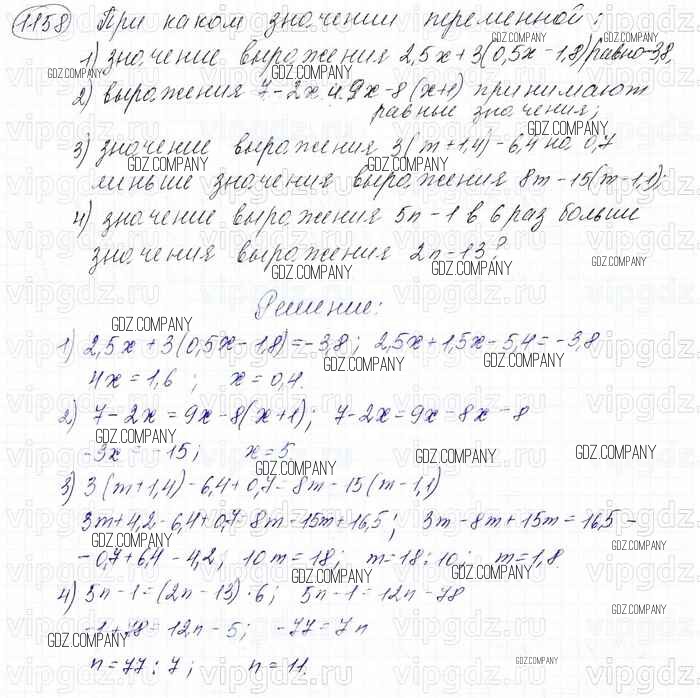 1158 При каком значении переменной:
1) значение выражения 2,5x+3(0,5x-1,8) равно -3,8;
2) выражения 7-2x и 9x-8(x+1) принимают
равные значения;
3) значение выражения 3(m+1,4)-6,4 на 0,7
меньше значения выражения 8m-15(m-1,1);
4) значение выражения 5n-1 в 6 раз больше
значения выражения 2n-13?
Решение:
1) 2,5x+3(0,5x-1,8)=-3,8; 2,5x+1,5x-5,4=-3,8
4x=1,6; x=0,4.
2) 7-2x=9x-8(x+1); 7-2x=9x-8x-8
-3x=-15; x=5
3) 3(m+1,4)-6,4+0,7=8m-15(m-1,1)
3m+4,2-6,4+0,7=8m-15m+16,5; 3m-8m+15m=16,5-
-0,7+6,4-4,2; 10m=18; m=18:10; m=1,8.
4) 5n-1=(2n-13)·6; 5n-1=12n-78
-1+78=12n-5; -77=7n
n=77:7; n=11.
GDZ.COMPANY
vipgdz.ru